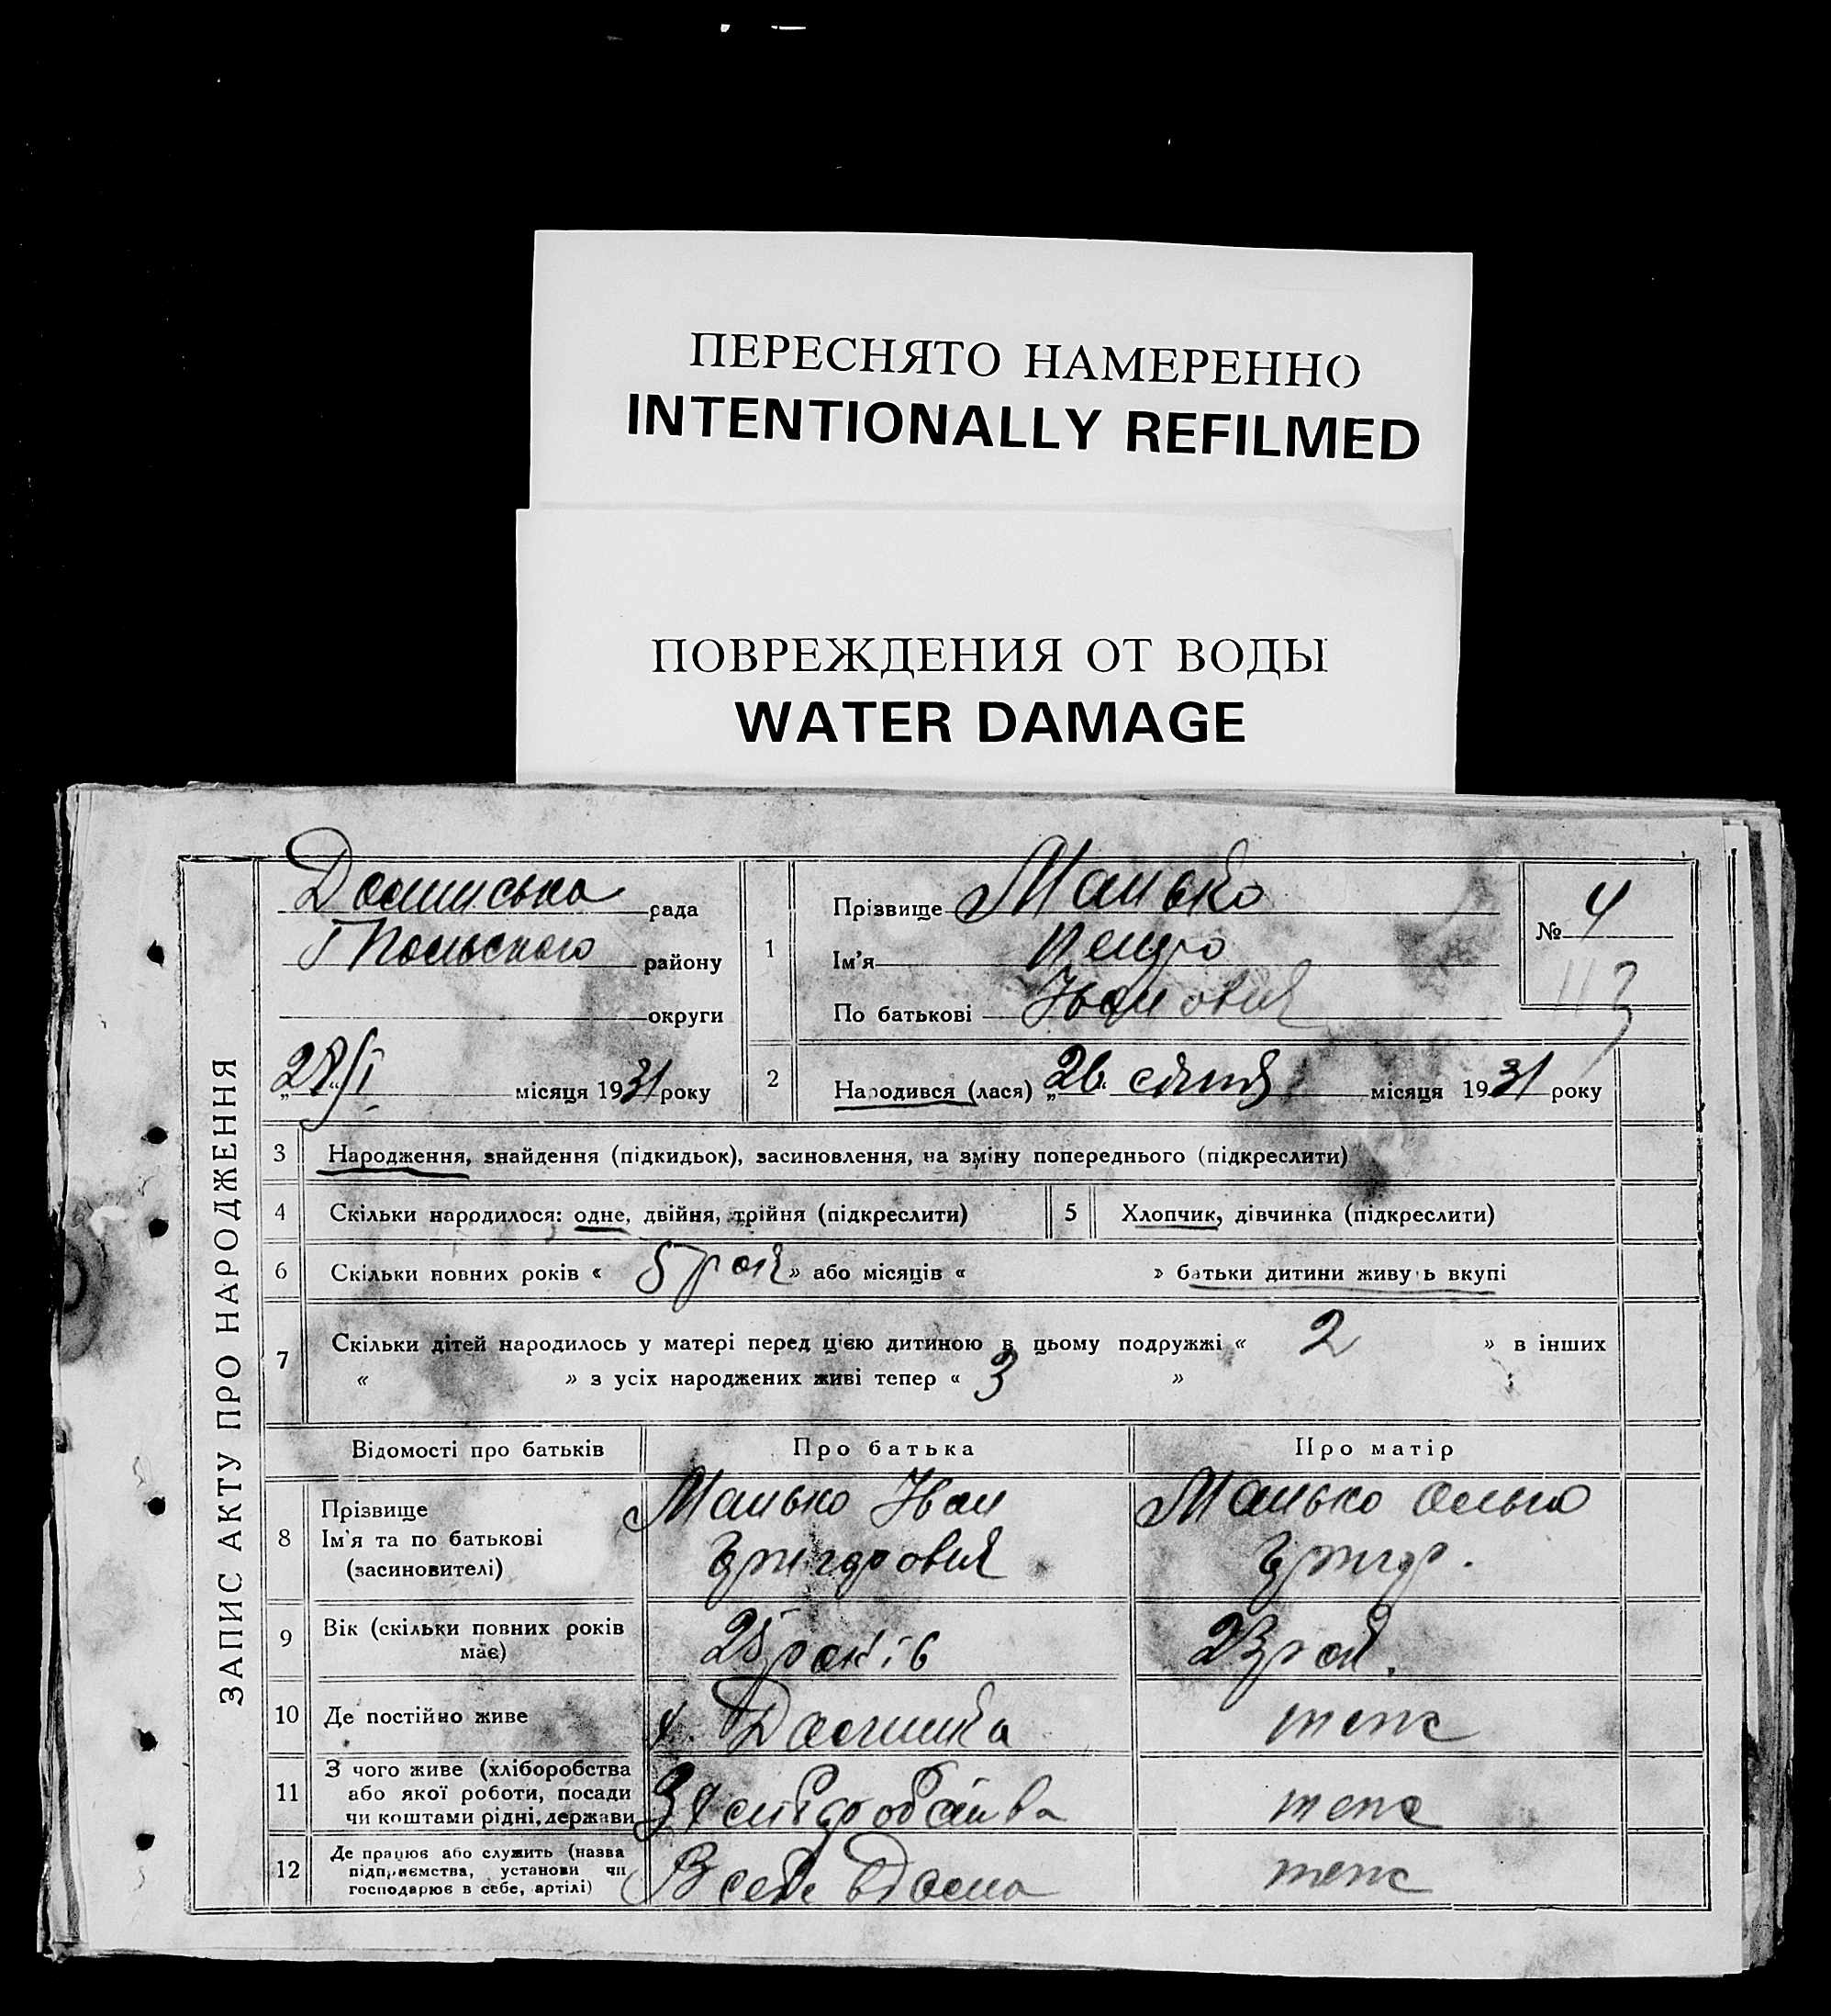 ПЕРЕСНЯТО НАМЕРЕННО
INTENTIONALLY REFILMED
ПОВРЕЖДЕНИЯ ОТ ВОДЫ
WATER DAMAGE
ЗАПИС АКТУ ПРО НАРОДЖЕННЯ
рада
району
округи
місяця 1931 року
1
Прізвище Манько
Ім'я Петро
По батькові Іванович
№ 4
113
2
Народився (лася) „26“ січня місяця 1931 року
3 Народження, знайдення (підкидьок), засиновлення, на зміну попереднього (підкреслити)
4 Скільки народилося: одне, двійня, трійня (підкреслити)
5 Хлопчик, дівчинка (підкреслити)
6 Скільки повних років « 5 рок » або місяців « » батьки дитини живуть вкупі
7 Скільки дітей народилось у матері перед цією дитиною в цьому подружжі « 2 » в інших
« » з усіх народжених живі тепер « 3 »
Відомості про батьків Про батька Про матір
8 Прізвище
Ім'я та по батькові
(засиновителі)
Манько Іван
Григорович
Манько Ольга
Григор.
9 Вік (скільки повних років
має)
25 років
23 рок.
10 Де постійно живе
теж
11 З чого живе (хліборобства
або якої роботи, посади
чи коштами рідні, держави
З хліборобства
теж
12 Де працює або служить (назва
підприємства, установи чи
господарює в себе, артілі)
В себе вдома
теж